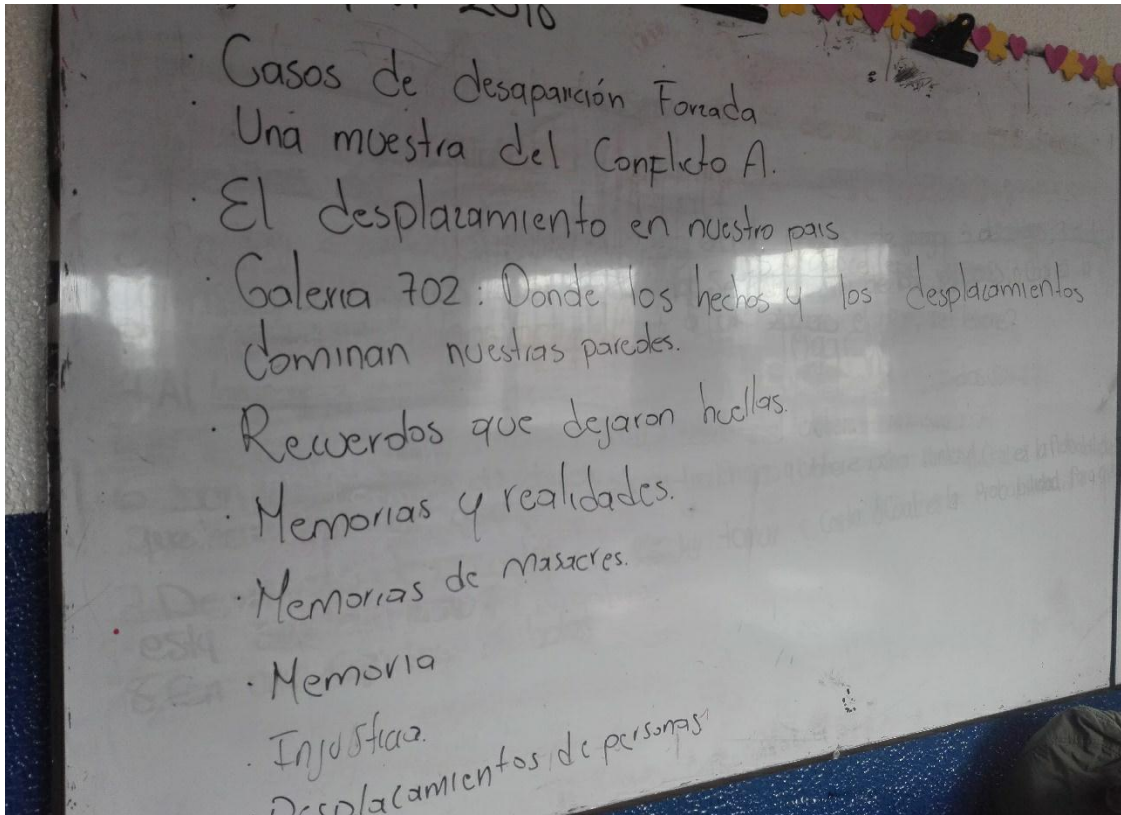 2016
· Casos de desaparición Forzada
Una muestra del Conflicto A.
· El desplazamiento en nuestro pais
· Galeria 702: Donde los hechos y los desplazamientos
dominan nuestras paredes.
· Recuerdos que dejaron huellas.
· Memorias y realidades.
· Memorias de masacres.
· Memoria
· Injusticia.
Desplazamientos de personas